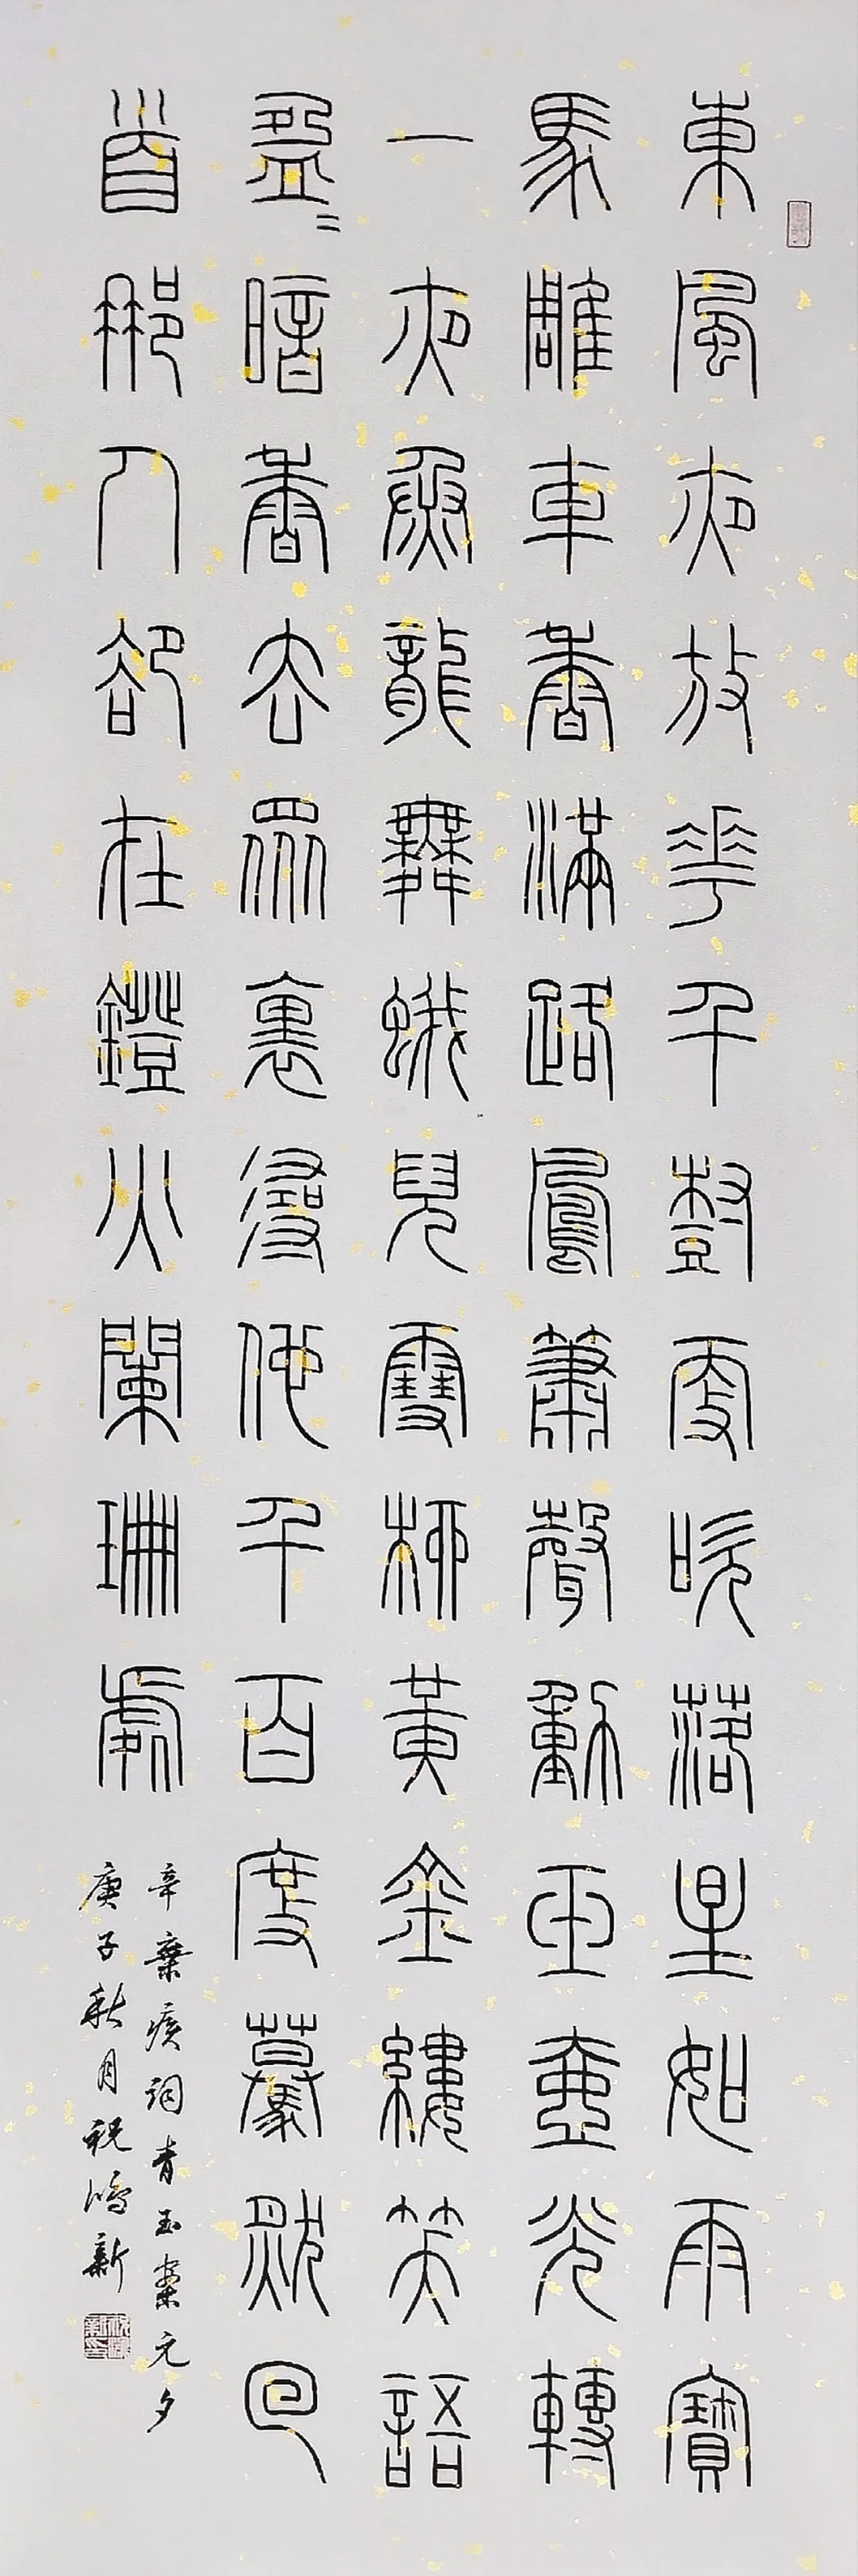 東風夜放花千樹更吹落星如雨寶
馬雕車香滿路鳳簫聲動玉壺光轉
一夜魚龍舞蛾兒雪柳黃金縷笑語
盈〻暗香去眾裏尋他千百度驀然回
首那人卻在鐙火闌珊處
辛棄疾詞青玉案元夕
庚子秋月祝鴻新